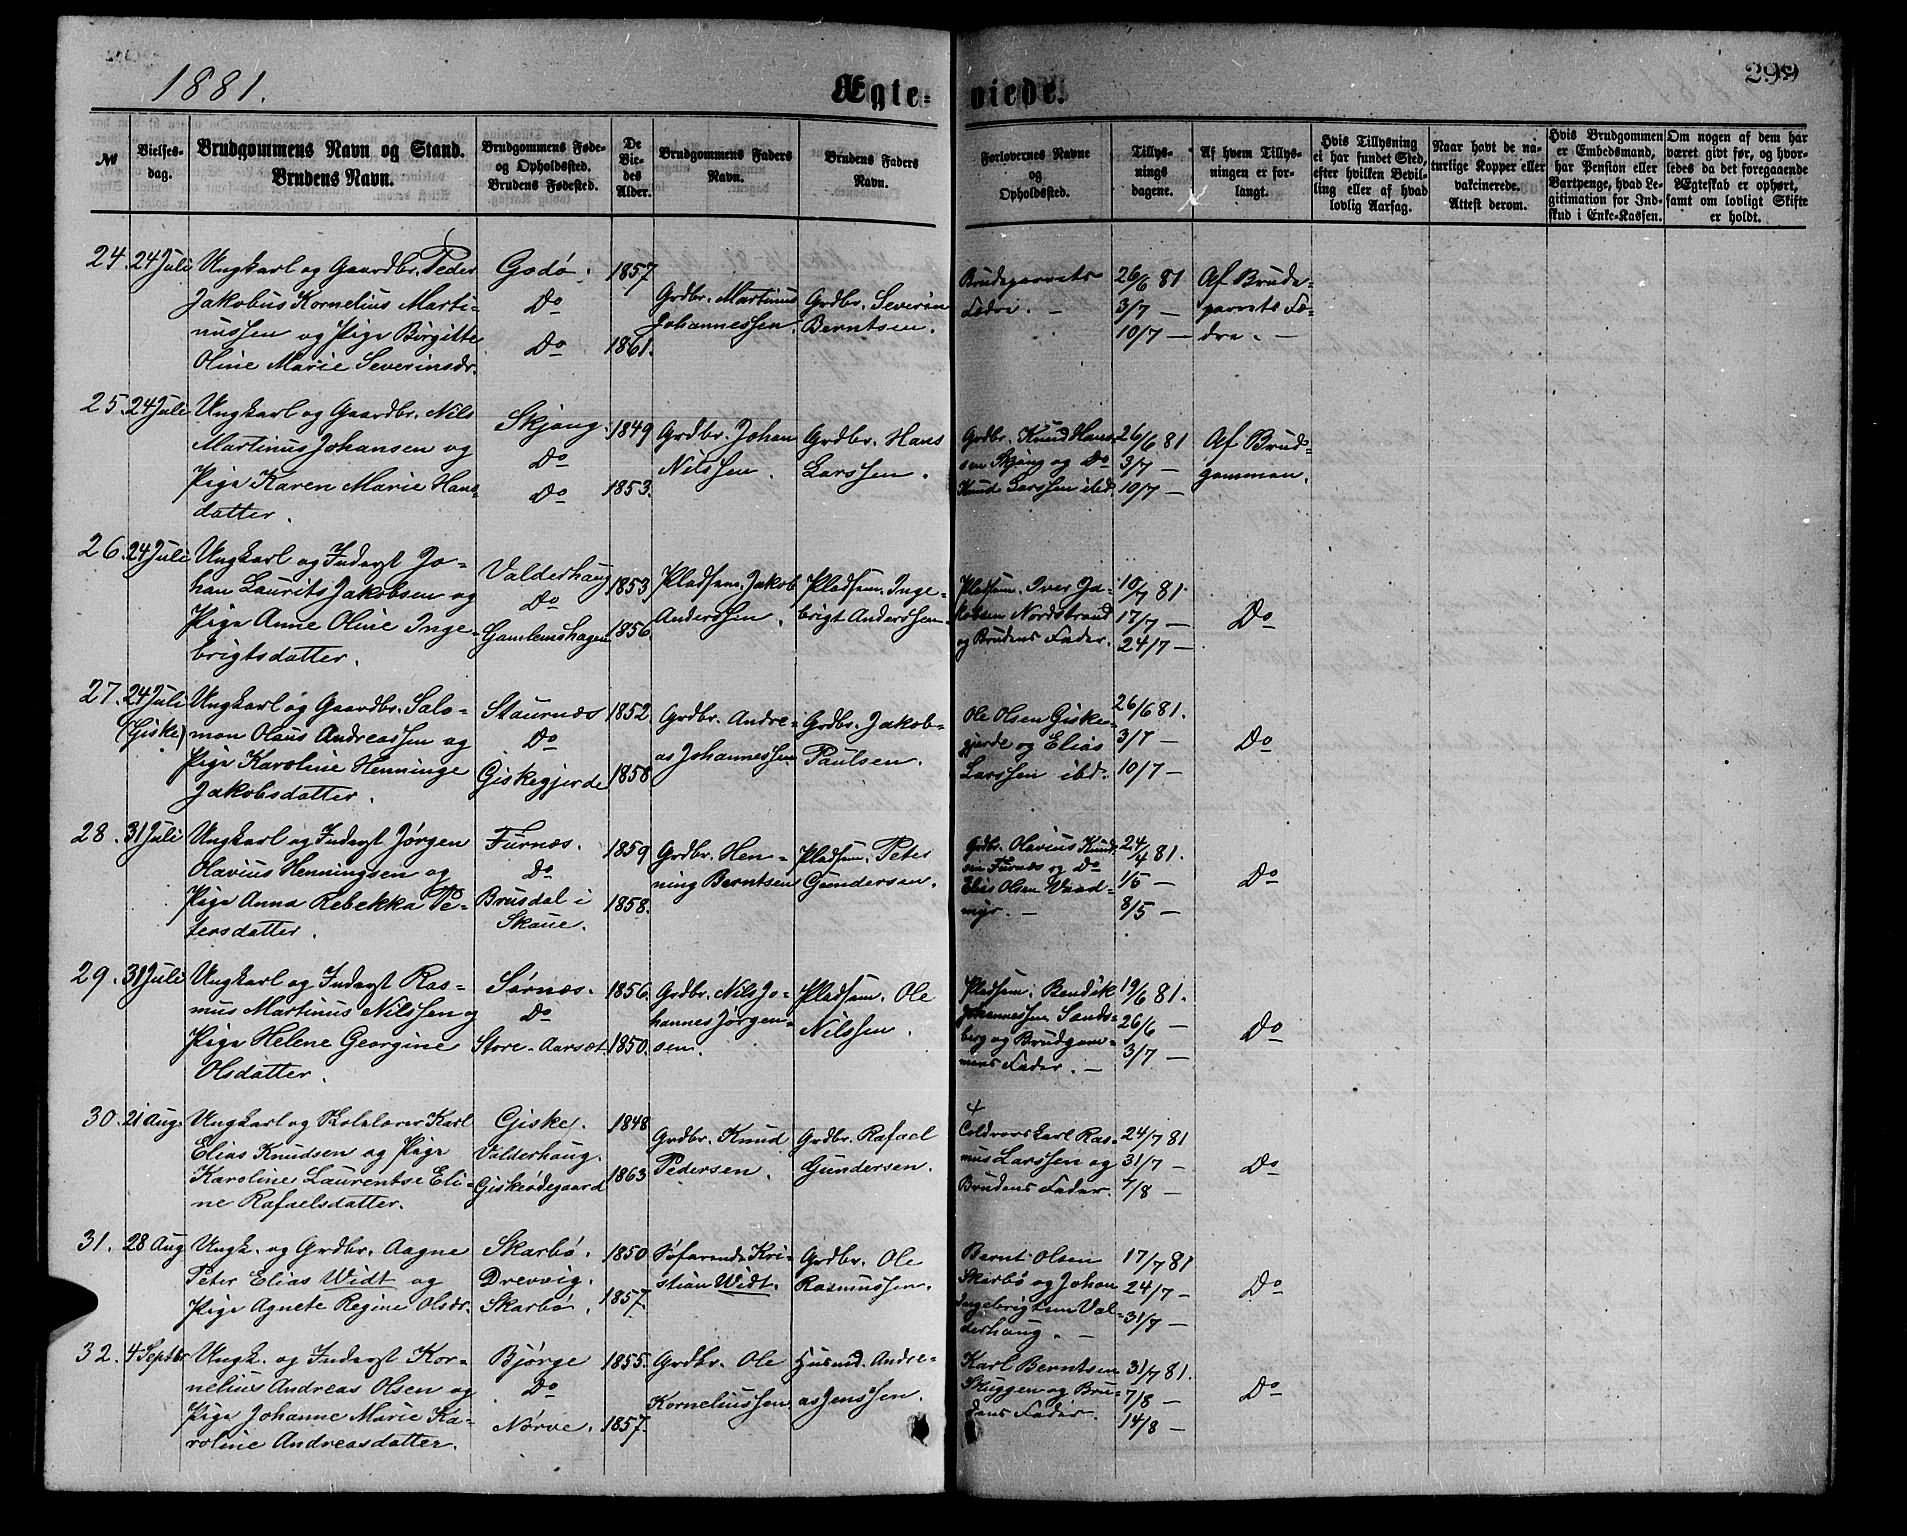 1881.
Ægte-
viede.
299
№
Vielses-
dag.
Brudgommens Navn og Stand.
Brudens Navn.
Brudgommens Føde-
og Opholdssted.
Brudens Fødested.
De
Vie-
des
Alder.
Brudgommens Faders
Navn.
Brudens Faders
Navn.
Forlovernes Navne
og
Opholdssted.
Tillys-
nings
dagene.
Af hvem Tillys-
ningen er for-
langt.
Hvis Tillysning
ei har fundet Sted,
efter hvilken Bevil-
ling eller af hvad
lovlig Aarsag.
Naar havt de na-
turlige Kopper eller
vakcinerede.
Attest derom.
Hvis Brudgommen
er Embedsmand,
har Pension eller
Vartpenge, hvad Le-
gitimation for Ind-
skud i Enke-Kassen.
Om nogen af dem har
været gift før, og hvor-
ledes da det foregaaende
Ægteskab er ophørt,
samt om lovligt Skifte
er holdt.
24.
24 Juli
Ungkarl og Gaardbr. Peder
Jakobus Kornelius Marti-
nussen og Pige Birgitte
Oline Marie Severinsdr.
Godø.
Do
Do
1857
1861.
Grdbr. Martinus
Johannessen.
Grdbr. Severin
Berntsen.
Brudeparrets
Fædre. —
26/6 81
3/7 —
10/7 —
Af Brude-
parrets Fæ-
dre. —
25.
24 Juli
Ungkarl og Gaardbr. Nils
Martinus Johansen og
Pige Karen Marie Hans-
datter.
Skjong.
Do
Do
1849
1853.
Grdbr. Johan
Nilssen.
Grdbr. Hans
Larssen.
Grdbr. Knud Hans-
sen Skjong og Do
Knud Larssen ibd.
26/6 81
3/7 —
10/7 —
Af Brud-
gommen.
26.
24 Juli
Ungkarl og Inderst Jo-
han Laurits Jakobsen og
Pige Anne Oline Inge-
brigtsdatter.
Valderhaug
Do
Gamlemshagen
1853
1856
Pladsem. Jakob
Anderssen.
Pladsem. Inge-
brigt Anderssen.
Pladsem. Iver Ja-
kobsen Nordstrand
og Brudens Fader.
10/7 81.
17/7 —
24/7 —
Do
27.
24 Juli
(Giske)
Ungkarl og Gaardbr. Salo-
mon Olaus Andreassen og
Pige Karoline Henninge
Jakobsdatter.
Staurnæs
Do
Giskegjerde
1852.
1858
Grdbr. Andre-
as Johannessen
Grdbr. Jakob
Paulsen.
Ole Olsen Giske-
gjerde og Elias
Larssen ibd.
26/6 81.
3/7 —
10/7 —
Do
28.
31 Juli
Ungkarl og Inderst Jørgen
Olavius Henningsen og
Pige Anna Rebekka Pe-
tersdatter.
Furnæs.
Do
Brusdal i
Skoue.
1859
1858.
Grdbr. Hen-
ning Berntsen
Pladsem. Peter
Gundersen.
Grdbr. Olavius Knud-
sen Furnæs og Do
Elias Olsen Vand-
myr. —
24/4 81.
1/5 —
8/5 —
Do
29.
31 Juli
Ungkarl og Inderst Ras-
mus Martinus Nilssen og
Pige Helene Georgine
Olsdatter.
Sørnæs.
Do
Store-Aarsæt.
1856.
1850.
Grdbr. Nils Jo-
hannes Jørgen-
sen.
Pladsem. Ole
Nilssen.
Pladsem. Bendik
Johannessen Sands-
berg og Brudgom-
mens Fader. —
19/6 81.
26/6 —
3/7 —
Do
30.
21 Aug.
Ungkarl og Skolelærer Karl
Elias Knudsen og Pige
Karoline Laurentse Eli-
ne Rafaelsdatter.
Giske.
Valderhaug.
Giskeødegaard
1848
1863
Grdbr. Knud
Pedersen.
Grdbr. Rafael
Gundersen.
Ras-
mus Larssen og
Brudens Fader.
24/7 81
31/7 —
7/8 —
Do
31.
28 Aug
Ungk. og Grdbr. Aagne
Peter Elias Widt og
Pige Agnete Regine Olsdr.
Skarbø.
Drevvig.
Skarbø.
1850
1857.
Søfarende Kri-
stian Widt.
Grdbr. Ole
Rasmussen.
Bernt Olsen
Skarbø og Johan
Ingebrigtsen Val-
derhaug. —
17/7 81
24/7 —
31/7 —
Do
32.
4 Septbr
Ungk. og Inderst Kor-
nelius Andreas Olsen og
Pige Johanne Marie Ka-
roline Andreasdatter.
Bjørge
Do
Nørve.
1855.
1857.
Grdbr. Ole
Korneliussen
Husmd. Andre-
as Jenssen.
Karl Berntsen
Skuggen og Bru-
dens Fader.
31/7 81.
7/8 —
14/8 —
Do